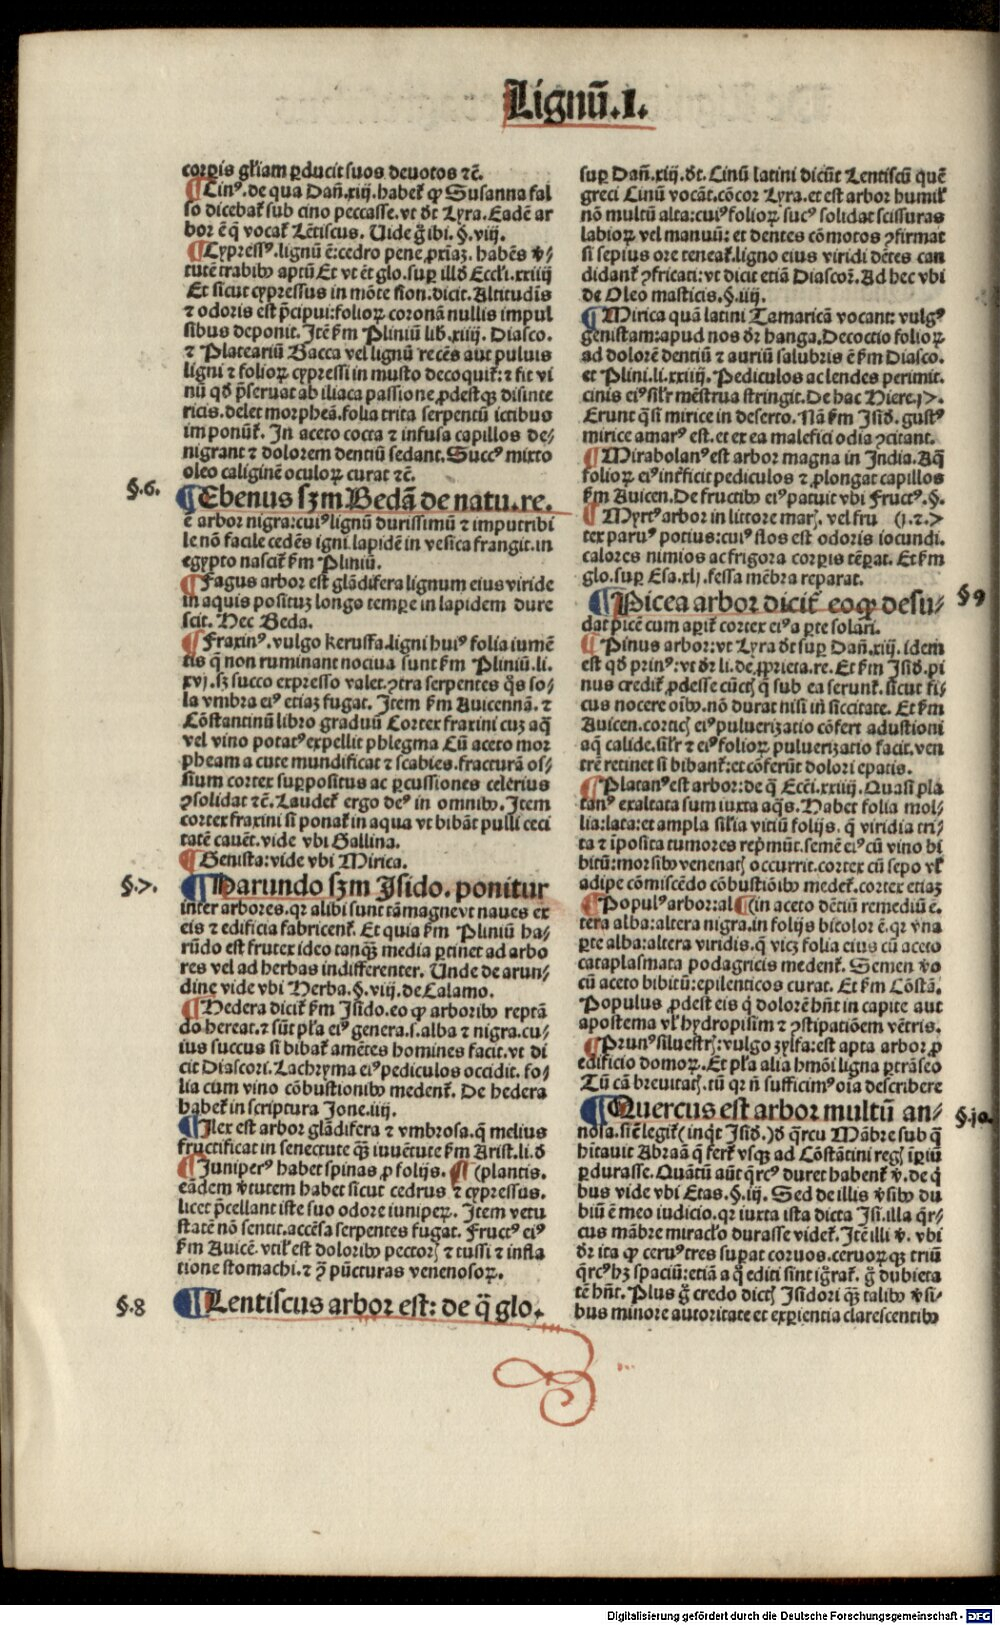 Lignū.1.
corꝑis gl'iam ꝑducit suos deuotos ⁊c̄.
¶ Cinꝰ.de qua Dañ.xiij.habet᷑ qɔ Susanna fal
so dicebat᷑ sub cino peccasse.vt dr̄ Lyra.Eadē ar
bor ē q̄ vocat᷑ Lētiscus. Uide ḡ ibi.§.viij.
¶ Cypressꝰ.lignū ē:cedro pene ꝓxīaꝫ. habēs v̄-
tutē trabibꝰ aptū Et vt ēt glo.suꝑ illđ Eccl'i.xxiiij
Et sicut cypressus in mōte sion.dicit.Altitudīs
⁊ odoris est p̄cipui:folioꝝ coronā nullis impul
sibus deponit. Itē ẜm Pliniū lib.xiiij. Diasco.
⁊ Plateariū Bacca vel lignū recēs aut puluis
ligni ⁊ folioꝝ cypressi in musto decoquit᷑:⁊ fit vi
nū qđ p̄seruat ab iliaca passione.ꝓdestqꝫ disinte
ricis.delet morpheā.folia trita serpentū ictibus
imponūt᷑. In aceto cocta ⁊ infusa capillos de-
nigrant ⁊ dolorem dentiū sedant.Succꝰ mixto
oleo caliginē oculoꝝ curat ⁊c̄.
§.6.
¶ Ebenus sꝫm Bedā de natu.re.
ē arbor nigra:cuiꝰ lignū durissimū ⁊ imputribi
le nō facile cedēs igni.lapidē in vesica frangit.in
egypto nascit᷑ ẜm Pliniū.
¶ Fagus arbor est glādifera lignum eius viride
in aquis positūꝫ longo tempe in lapidem dure
scit. Hec Beda.
¶ Fraxinꝰ.vulgo kerussa.ligni huiꝰ folia iumē
tis q̄ non ruminant nociua sunt ẜm Pliniū.li.
xvj.sꝫ succo expresso valet.ꝯtra serpentes q̄s so-
la vmbra eiꝰ etiaꝫ fugat. Item ẜm Auicennā.⁊
Cōstantinū libro graduū Cortex fraxini cuꝫ aq̄
vel vino potatꝰ expellit phlegma Cū aceto mor
pheam a cute mundificat ⁊ scabies.fracturā os-
sium cortex suppositus ac ꝑcussiones celerius
ꝯsolidat ⁊c̄.Laudet᷑ ergo deꝰ in omnibꝰ. Item
cortex fraxini si ponat᷑ in aqua vt bibāt pulli ceci
tatē cauēt.vide vbi Gallina.
¶ Genista:vide vbi Mirica.
§.7.
¶ Harundo sꝫm Isido.ponitur
inter arbores.qr alibi sunt tā magne vt naues ex
eis ⁊ edificia fabricent᷑. Et quia ẜm Pliniū ha-
rūdo est frutex ideo tanqꝫ media ꝑtinet ad arbo
res vel ad herbas indifferenter. Unde de arun-
dine vide vbi Herba.§.viij.de Calamo.
¶ Hedera dicit᷑ ẜm Isido.eo qɔ arboribꝰ reptā
do hereat.⁊ sūt pl'a eiꝰ genera.s.alba ⁊ nigra.cu-
ius succus si bibat᷑ amētes homines facit.vt di
cit Diascori.Lachryma eiꝰ pediculos occidit. fo-
lia cum vino cōbustionibꝰ medent᷑. De hedera
habet᷑ in scriptura Jone.iiij.
¶ Ilex est arbor glādifera ⁊ vmbrosa.q̄ melius
fructificat in senectute qꝫ iuuētute ẜm Arist.li.đ
¶ Juniperꝰ habet spinas ꝓ folijs. ¶ (plantis.
eādem v̄tutem habet sicut cedrus ⁊ cypressus.
licet p̄cellant iste suo odore iuniperꝝ. Item vetu
statē nō sentit.accēsa serpentes fugat. Fructꝰ eiꝰ
ẜm Auicē.vtil'est doloribꝰ pectorꝭ ⁊ tussi ⁊ infla
tione stomachi.⁊ ꝯ̄ pūcturas venenosoꝝ.
§.8
¶ Lentiscus arbor est: de q̄ glo.
suꝑ Dañ.xiij.dt. Cinū latini dicūt Lentiscū quē
greci Cinū vocāt.cōcor Lyra.et est arbor humil'
nō multū alta:cuiꝰ folioꝝ sucꝰ solidat scissuras
labioꝝ vel manuū: et dentes cōmotos ꝯfirmat
si sepius ore teneat᷑.ligno eius viridi dētes can
didant᷑ ꝯfricati:vt dicit etiā Diascoꝝ. Ad hec vbi
de Oleo masticis.§.iiij.
¶ Mirica quā latini Tamaricā vocant: vulgꝰ
genistam:apud nos dr̄ hanga.Decoctio folioꝝ
ad dolorē dentiū ⁊ auriū salubris ē ẜm Diasco.
et Plini.li.xxiiij. Pediculos ac lendes perimit.
cinis eiꝰ sil'r mēstrua stringit.De hac Hiere.17.
Erunt q̄si mirice in deserto. Nā ẜm Isid. gustꝰ
mirice amarꝰ est.et ex ea malefici odia ꝯcitant.
¶ Mirabolanꝰ est arbor magna in India. Aq̄
folioꝝ eiꝰ int'ficit pediculos ⁊ ꝓlongat capillos
ẜm Auicen.De fructibꝰ eiꝰ patuit vbi Fructꝰ.§.
¶ Myrtꝰ arbor in littore marꝭ. vel fru (j.⁊.7
tex paruꝰ potius:cuiꝰ flos est odoris iocundi.
calores nimios ac frigora corꝑis tēꝑat. Et ẜm
glo.suꝑ Esa.xlj.fessa mēbra reparat.
§9
¶ Picea arbor dicit᷑ eoqɔ desu-
dat picē cum aꝑit᷑ cortex eiꝰ a ꝑte solari.
¶ Pinus arbor:vt Lyra dt suꝑ Dañ.xiij.idem
est qđ prinꝰ:vt dr̄ li.de ꝓprieta.re. Et ẜm Isid.pi
nus credit᷑ ꝓdesse cūctꝭ q̄ sub ea serunt᷑. sicut fi-
cus nocere oībꝰ.nō durat nisi in siccitate. Et ẜm
Auicen.corticꝭ eiꝰ puluerizatio cōfert adustioni
aq̄ calide.sil'r ⁊ eiꝰ folioꝝ puluerizatio facit.ven
trē retinet si bibant᷑:et cōferūt dolori epatis.
¶ Platanꝰ est arbor:de q̄ Ecc'i.xxiiij. Quasi pla
tanꝰ exaltata sum iuxta aq̄s. Habet folia mol-
lia:lata:et ampla sil'ia vitiū folijs. q̄ viridia tri-
ta ⁊ īposita tumores rep̄mūt.semē eiꝰ cū vino bi
bitū:morsibꝰ venenatꝭ occurrit.cortex cū sepo vl'
adipe cōmiscēdo cōbustiōibꝰ medet᷑.cortex etiaꝫ
¶ Populꝰ arbor:al ¶ (in aceto dētiū remediū ē.
tera alba:altera nigra.in folijs bicolor ē.qr vna
ꝑte alba:altera viridis.q̄ viꝫ folia eius cū aceto
cataplasmata podagricis medent᷑. Semen v̄o
cū aceto bibitū:epilenticos curat. Et ẜm Cōstā.
Populus ꝓdest eis q̄ dolorē hn̄t in capite aut
apostema vl' hydropisim ⁊ ꝯstipatiōem vētris.
¶ Prunꝰ siluestrꝭ:vulgo zylfa:est apta arbor ꝓ
edificio domoꝝ. Et pl'a alia hmōi ligna ꝑtrāseo
Tū cā breuitatꝭ.tū qr n̄ sufficimꝰ oīa describere
§.10.
¶ Quercus est arbor multū an-
nosa.siē legit᷑ (inq̄t Isid.)đ q̄rcu Mābre sub q̄
hitauit Abraā q̄ fert᷑ vsqꝫ ad Cōstātini regꝭ īpiū
ꝑdurasse.Quātū aūt q̄rcꝰ duret habent᷑ v̄.de q̄
bus vide vbi Etas.§.iij. Sed de illis v̄sibꝰ du
biū ē meo iudicio.qr iuxta ista dicta Isi.illa q̄r-
cus mābre miracl'o durasse videt᷑.Itē illi v̄. vbi
dr̄ ita qɔ ceruꝰ tres suꝑat coruos.ceruoꝝ qꝫ triū
q̄rcꝰ hꝫ spaciū:etiā a q̄ editi sint iḡrat᷑. ḡ dubieta
tē hn̄t. Plus ḡ credo dictꝭ Isidori qꝫ talibꝰ v̄si-
bus minore autoritate et exꝑientia clarescentibꝰ
Digitalisierung gefördert durch die Deutsche Forschungsgemeinschaft - DFG